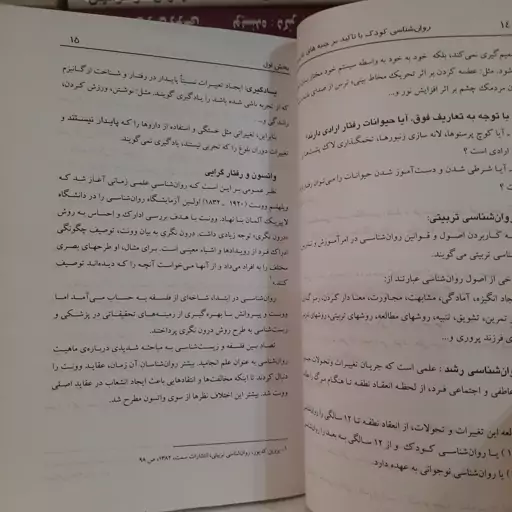 ۱۴ روان‌شناسی کودک با تاکید بر جنبه های
میم‌گیری نمی‌کند، بلکه خود به خود به واسطه سیستم عصبی خود مختار
شود. مثل: عطسه کردن بر اثر تحریک مخاط بینی، ترس از صدای
ن مردمک چشم بر اثر افزایش نور و...
با توجه به تعاریف فوق، آیا حیوانات رفتار ارادی دارند؟
ـ آیا کوچ پرستوها، لانه سازی زنبورها، تخمگذاری لاک پشت‌ها
ارادی است ؟
ـ آیا شرطی شدن و دست‌آموز شدن حیوانات را می‌توان رفتار
ی است ؟
روان‌شناسی تربیتی:
ه کاربردن اصول و قوانین روان‌شناسی در امر آموزش و
ناسی تربیتی می گویند.
رخی از اصول روان‌شناسی عبارتند از:
جاد انگیزه، آمادگی، مشابهت، مجاورت، معنا دار کردن،
تمرین، تشویق، تنبیه، روشهای مطالعه، روشهای تربیتی، روشهای
ی فرزند پروری و...
روان‌شناسی رشد : علمی است که جریان تغییرات و تحولات
عاطفی و اجتماعی فرد، از لحظه انعقاد نطفه تا هنگام مرگ را
لعه این تغییرات و تحولات، از انعقاد نطفه تا ۱۲ سالگی را
) یا روان‌شناسی کودک و از ۱۲ سالگی به بعد را
) یا روان‌شناسی نوجوانی به عهده دارد.
بخش اول ۱۵
یادگیری: ایجاد تغییرات نسبتاً پایدار در رفتار و شناخت ارگانیزم
که از تجربه ناشی شده باشد را یادگیری گویند. مثل: نوشتن، ورزش کردن،
رانندگی و...
بنابراین، تغییراتی مثل خستگی و استفاده از داروها را که پایدار نیستند و
تغییرات دوران بلوغ را که تجربی نیستند، یادگیری نمی‌گویند.
واتسون و رفتار گرایی
نظر عمومی بر این است که روان‌شناسی علمی زمانی آغاز شد که
ویلهلم وونت (۱۹۲۰ ـ ۱۸۳۲) اولین آزمایشگاه روان‌شناسی را در دانشگاه
لایپزیک آلمان بنا نهاد. وونت با هدف بررسی ادراک و احساس به روش
درون نگری توجه زیادی داشت. درون نگری به بیان وونت، توصیف چگونگی
ادراک فرد از رویدادها و اشیاء معینی است. برای مثال، او طرحهای بصری
مختلف را به افراد می‌داد و از آنها می‌خواست آنچه را که دیده‌اند توصیف
کنند.¹
روان‌شناسی در ابتداء شاخه‌ای از فلسفه به حساب می‌آمد اما
وونت و پیروانش با بهره‌گیری از زمینه‌های تحقیقاتی در پزشکی و
زیست‌شناسی به طرح روش درون نگری پرداختند.
تضاد بین فلسفه و زیست‌شناسی به مباحثه شدیدی درباره‌ی ماهیت
روان‌شناسی به عنوان علم انجامید. بیشتر روان‌شناسان آن زمان، عقاید وونت را
دنبال کردند تا اینکه مخالفت‌ها و انتقادهایی باعث ایجاد انشعاب در عقاید اصلی
وونت شد. بیشتر این اختلاف نظرها از سوی واتسون مطرح شد.
۱ـ پروین کدیور، روان‌شناسی تربیتی، انتشارات سمت، ۱۳۸۲، ص ۹۸